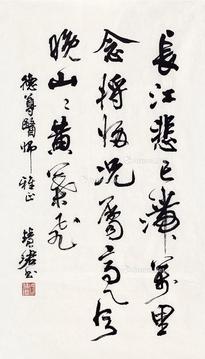 長江悲已滯萬里
念將歸況屬高風
晚山〻黃葉飛
德尊醫師雅正